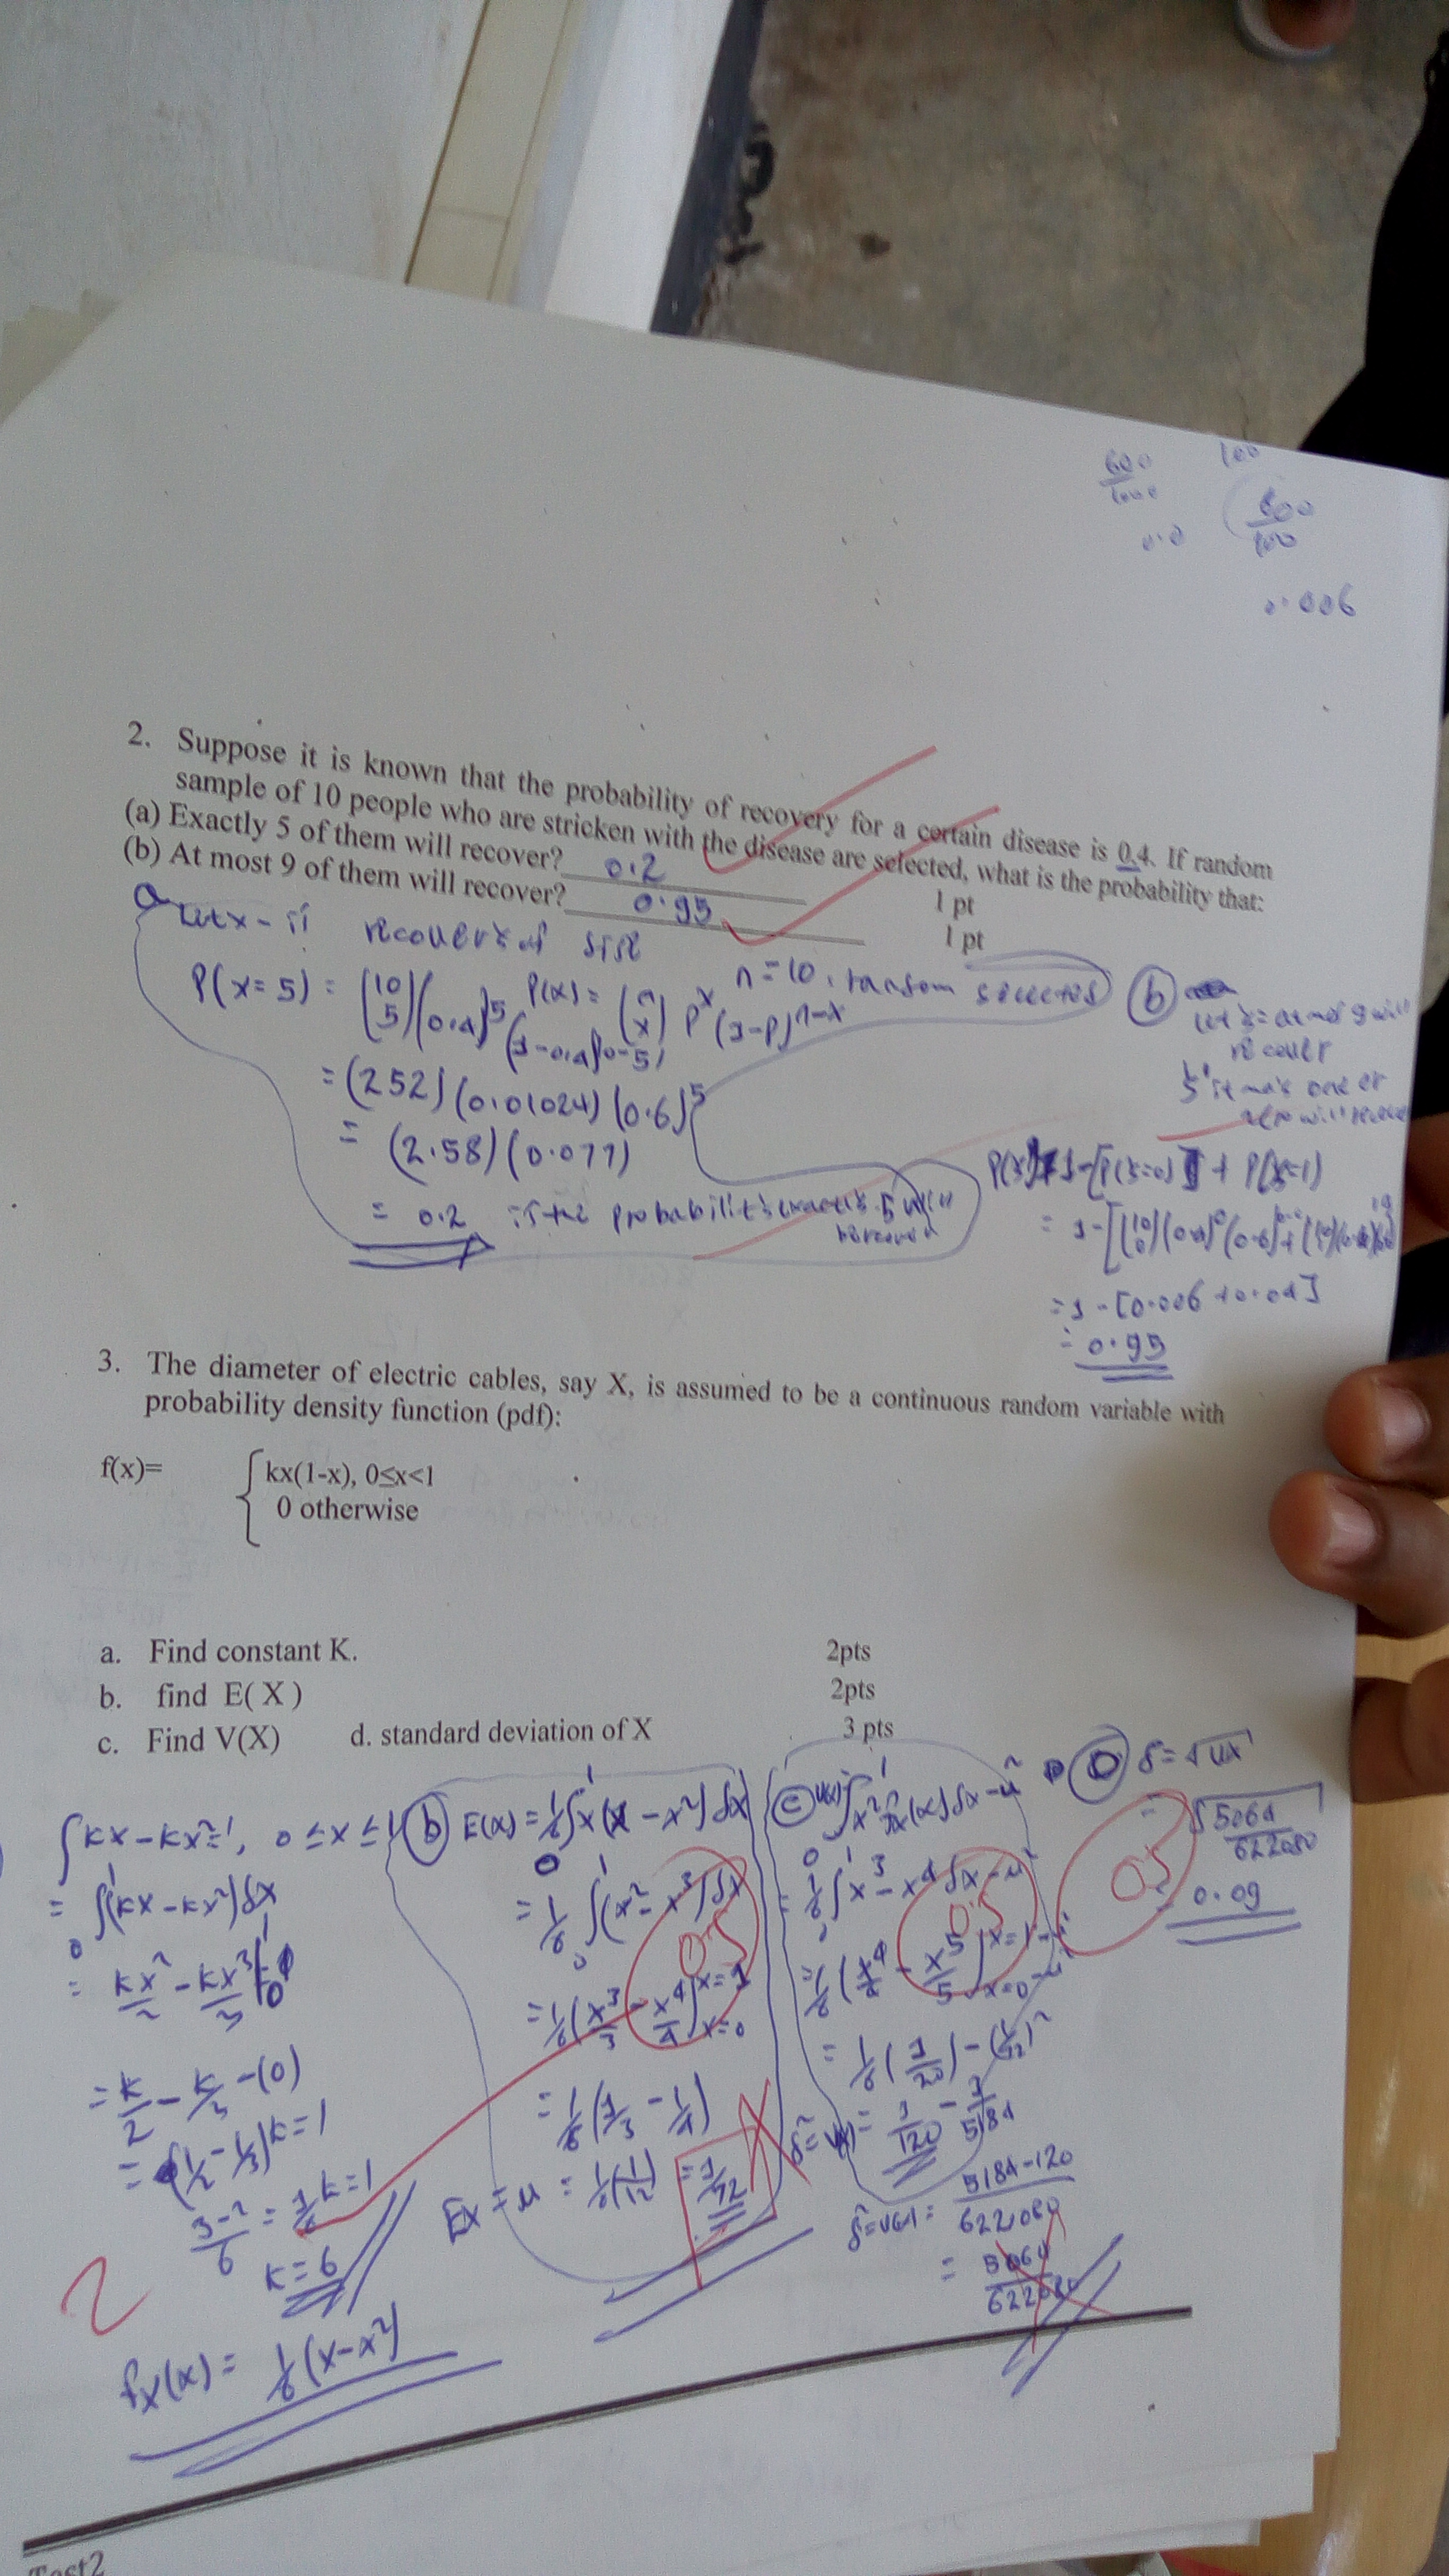 600
1000
100
600
100
0.0
0.006
2. Suppose it is known that the probability of recovery for a certain disease is 0.4. If random
sample of 10 people who are stricken with the disease are selected, what is the probability that:
(a) Exactly 5 of them will recover? 0.2 1 pt
(b) At most 9 of them will recover? 0.95 1 pt
a
recovery of
n=10, random selected
P(x) = (n x) p^x (1-p)^n-x
P(x=5) = (10 5)(0.4)^5 (1-0.4)^10-5
= (252)(0.01024)(0.6)^5
= (2.58)(0.077)
= 0.2 is the probability exactly 5 will
b
recover
1-[P(x=0)] + P(x=1)
= 1 - [0.006 + 0.04]
= 0.95
3. The diameter of electric cables, say X, is assumed to be a continuous random variable with
probability density function (pdf):
f(x)= { kx(1-x), 0≤x<1
0 otherwise
a. Find constant K. 2pts
b. find E( X ) 2pts
c. Find V(X) d. standard deviation of X 3 pts
∫kx-kx²=1, 0≤x≤1
= ∫(kx-kx²)dx
= kx²/2 - kx³/3
= k/2 - k/3 - (0)
= (1/2 - 1/3)k = 1
3-2/6 = 1/6 k = 1
k = 6
2
fx(x) = 1/6 (x-x²)
b E(x) = 1/6 ∫x(x-x²)dx
= 1/6 ∫(x²-x³)dx
0.5
= 1/6 (x³/3 - x⁴/4) x=1 x=0
= 1/6 (1/3 - 1/4)
Ex = u = 1/6 (1/12) = 1/72
c
= 1/6 ∫x³-x⁴dx-u²
0.5
= 1/6 (x⁴/4 - x⁵/5) x=1 x=0 -u²
= 1/6 (1/20) - (1/72)²
= 1/120 - 1/5184
= 5184-120
622080
= 5064
622080
D δ = √vx
= √5064
622080
0.5
= 0.09
Test2